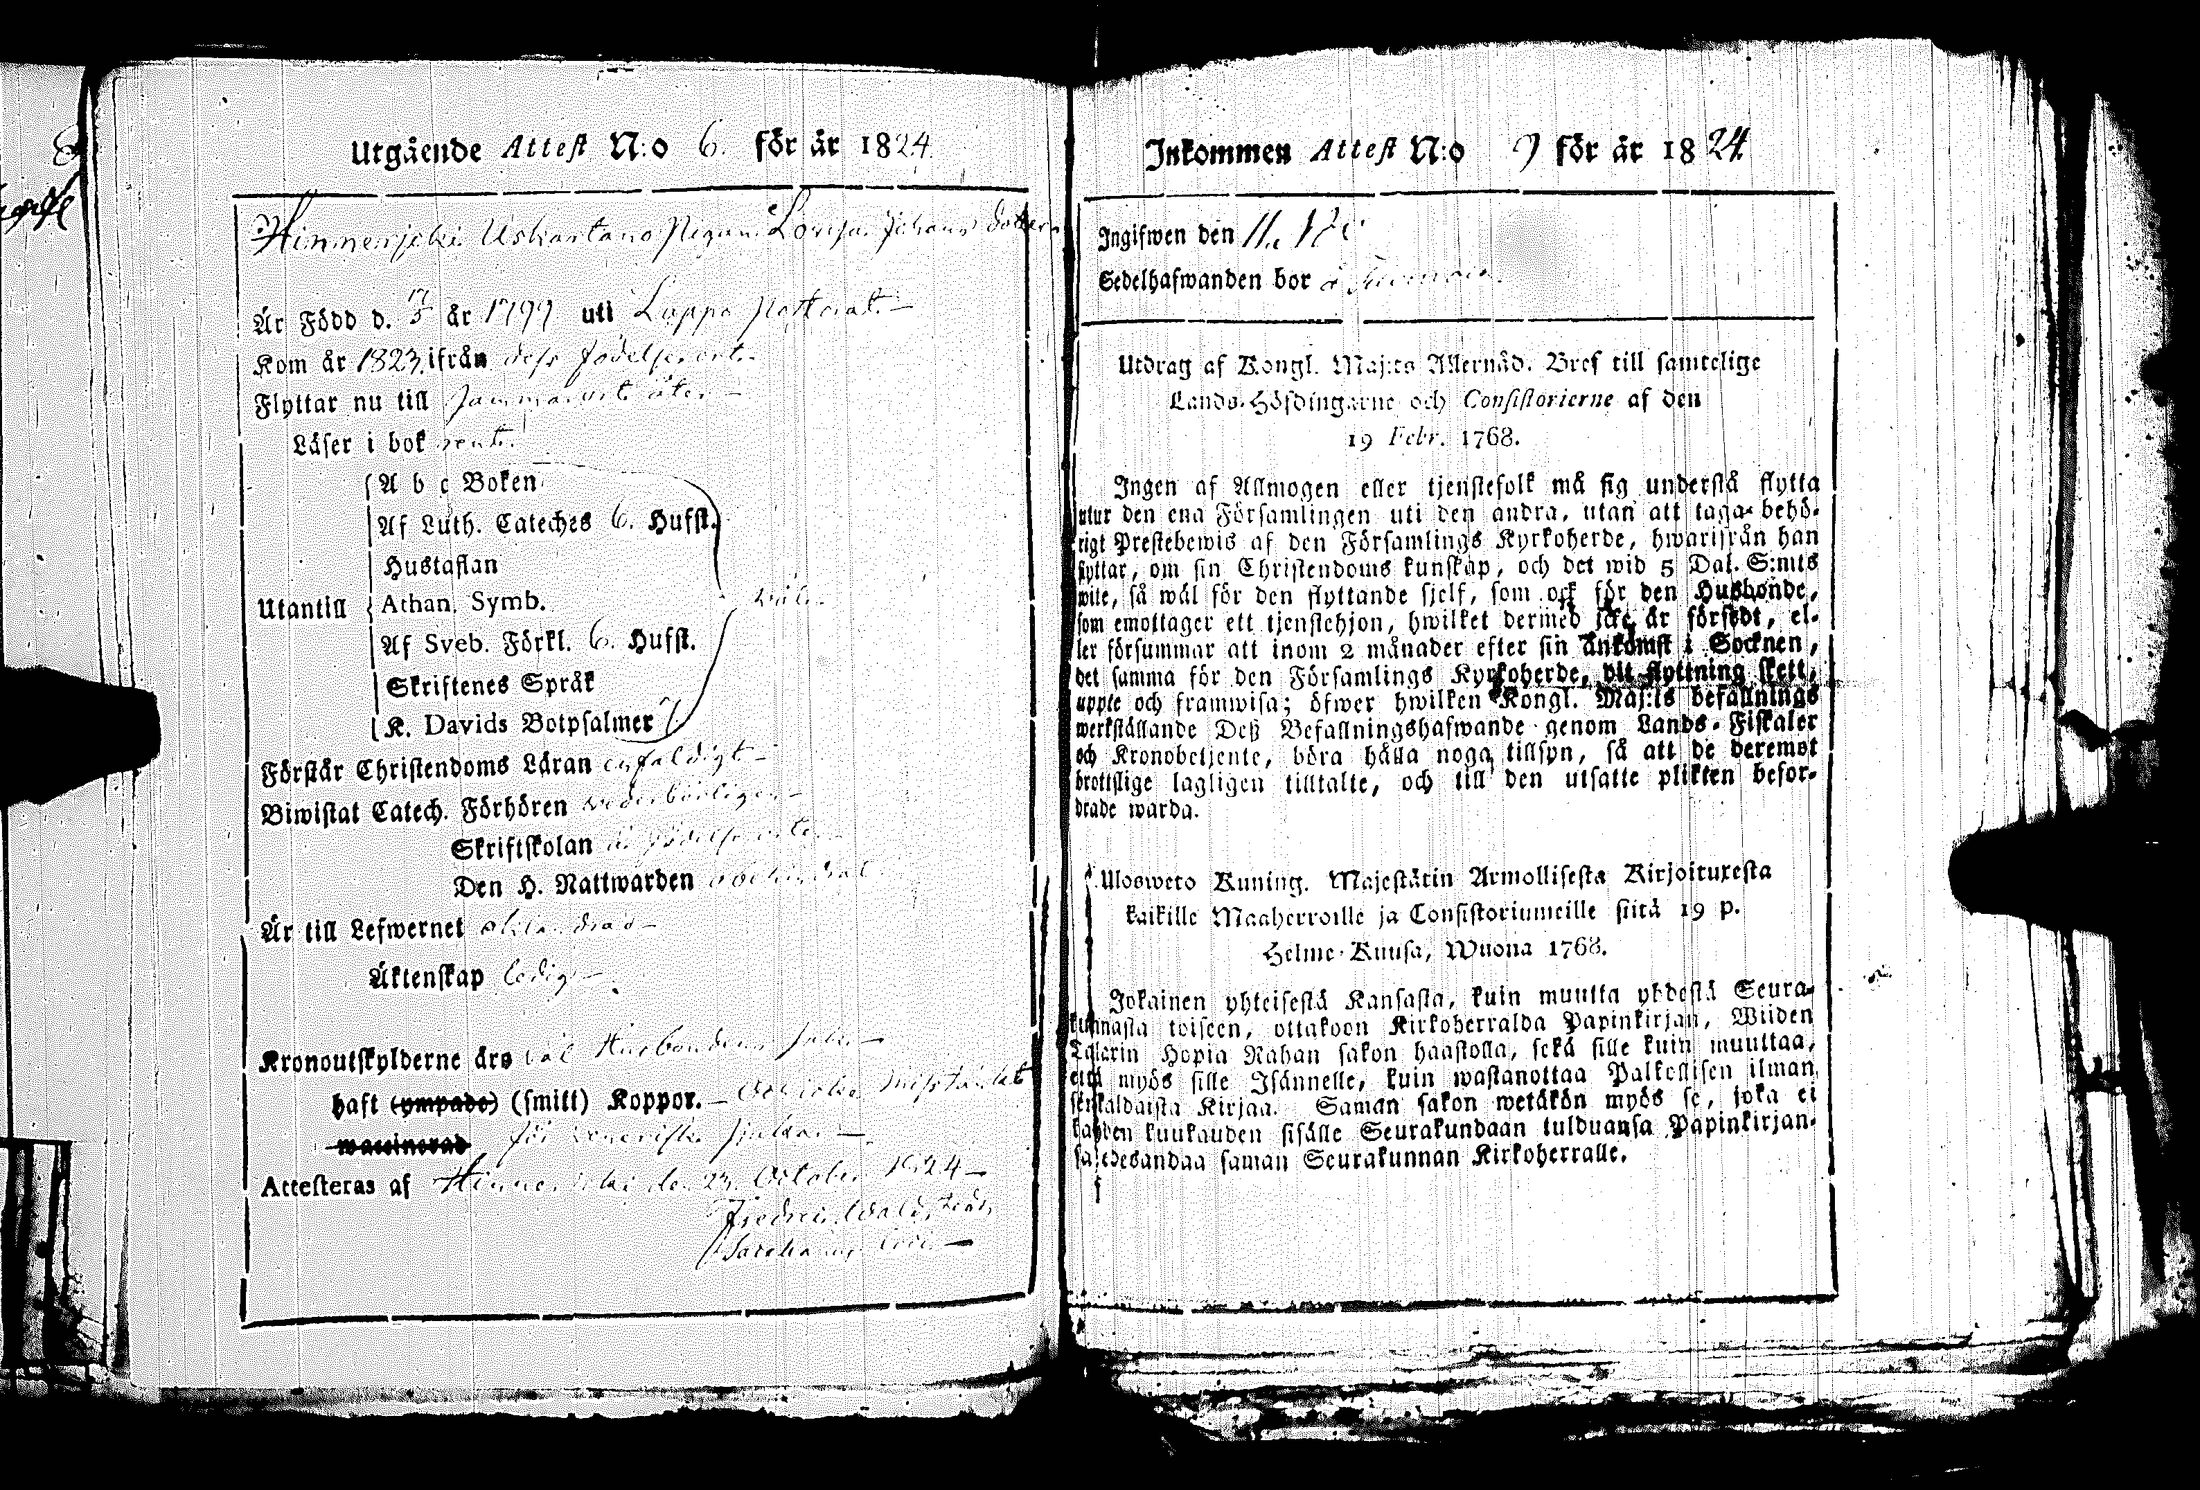 Utgående Attest N:o 6. för år 1824.
Himmenjoki Uskartano Pigan Lovisa Johans dotter
Är Född d. 17/5 år 1799 uti Lappo Pastorat.
Kom år 1823 ifrån dess födelse ort.
Flyttar nu till samma ort åter
Läser i bok rent.
A b c Boken
Af Luth. Cateches 6. Hufst.
Hustaflan
Utantill Athan. Symb. väl.
Af Sveb. Förkl. 6. Hufst.
Skriftenes Språk
K. Davids Botpsalmer 7
Förstår Christendoms Läran enfaldigt
Biwistat Catech. Förhören vederbörligen
Skriftskolan i födelse orten
Den H. Nattwarden
Är till Lefwernet oklandrad
Äktenskap ledig
Kronoutskylderne äro Husbonden
haft (ympade) (smitt) Koppor. och icke misstänkt
waccinerad för veneriska sjukan
Attesteras af den 23 October 1824
Fredric
Inkommen Attest N:o 9 för år 1824.
Ingifwen den 11.
Sedelhafwanden bor
Utdrag af Kongl. Maj:ts Allernåd. Bref till samtelige
Lands-Höfdingarne och Consistorierne af den
19 Febr. 1768.
Ingen af Allmogen eller tjenstefolk må sig understå flytta
utur den ena Församlingen uti den andra, utan att taga behö-
rigt Prestebewis af den Församlings Kyrkoherde, hwarifrån han
flyttar, om sin Christendoms kunskap, och det wid 5 Dal. S:mts
wite, så wäl för den flyttande sjelf, som ock för den Husbonde,
som emottager ett tjenstehjon, hwilket dermed icke är försedt, el-
ler försummar att inom 2 månader efter sin ankomst i Socknen,
det samma för den Församlings Kyrkoherde, dit flyttning skett,
uppte och framwisa; öfwer hwilken Kongl. Maj:ts befallnings
werkställande Deß Befallningshafwande genom Lands-Fiskaler
och Kronobetjente, böra hålla noga tillsyn, så att de deremot
brottslige lagligen tilltalte, och till den utsatte plikten befor-
drade warda.
Ulosweto Kuning. Majestätin Armollisesta Kirjoituxesta
kaikille Maaherroille ja Consistoriumeille siitä 19 p.
Helme-Kuusa, Wuona 1768.
Jokainen yhteisestä Kansasta, kuin muutta yhdestä Seura-
kunnasta toiseen, ottakoon Kirkoherralda Papinkirjan, Wiiden
Talarin Hopia Rahan sakon haastolla, sekä sille kuin muuttaa,
että myös sille Isännelle, kuin wastanottaa Palkollisen ilman
senkaldaista Kirjaa. Saman sakon wetäkön myös se, joka ei
kahden kuukauden sisälle Seurakundaan tulduansa Papinkirjan-
sa edesandaa saman Seurakunnan Kirkoherralle.